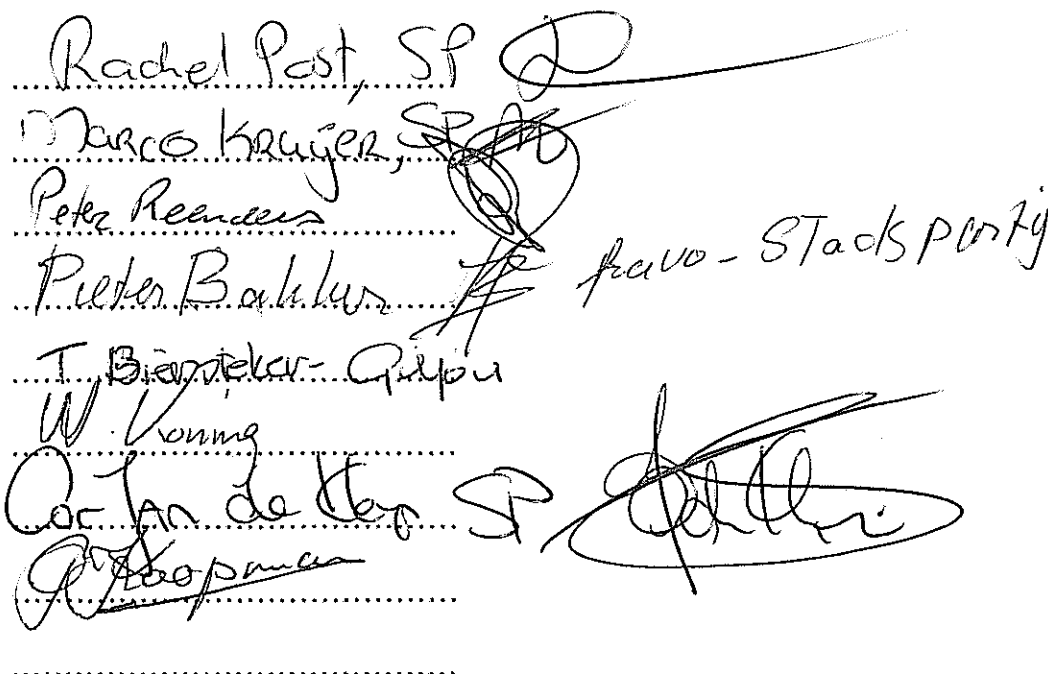 Rachel Post, SP
Marco Kruijer, SP
Peter Reenders
Pieter Bakker Stadspartij
T. Biersteker-
W. Koning
Cor Jan de SP
Koopman